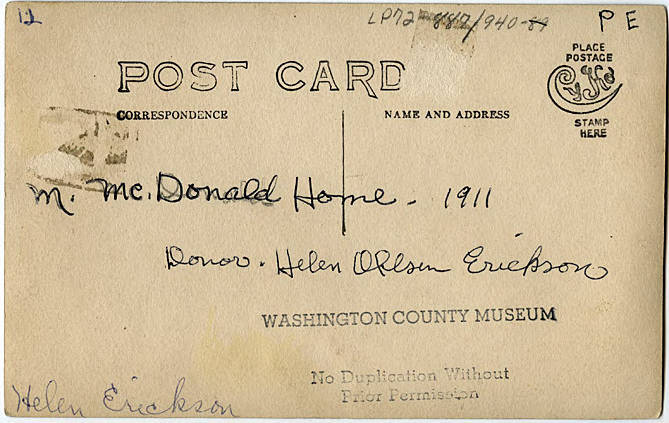 12
LP72-887/940-89
P E
POST CARD
PLACE
POSTAGE
CyKo
STAMP
HERE
CORRESPONDENCE
NAME AND ADDRESS
M. Mc. Donald Home - 1911
Donor - Helen Ohlsen Erickson
WASHINGTON COUNTY MUSEUM
No Duplication Without
Prior Permission
Helen Erickson